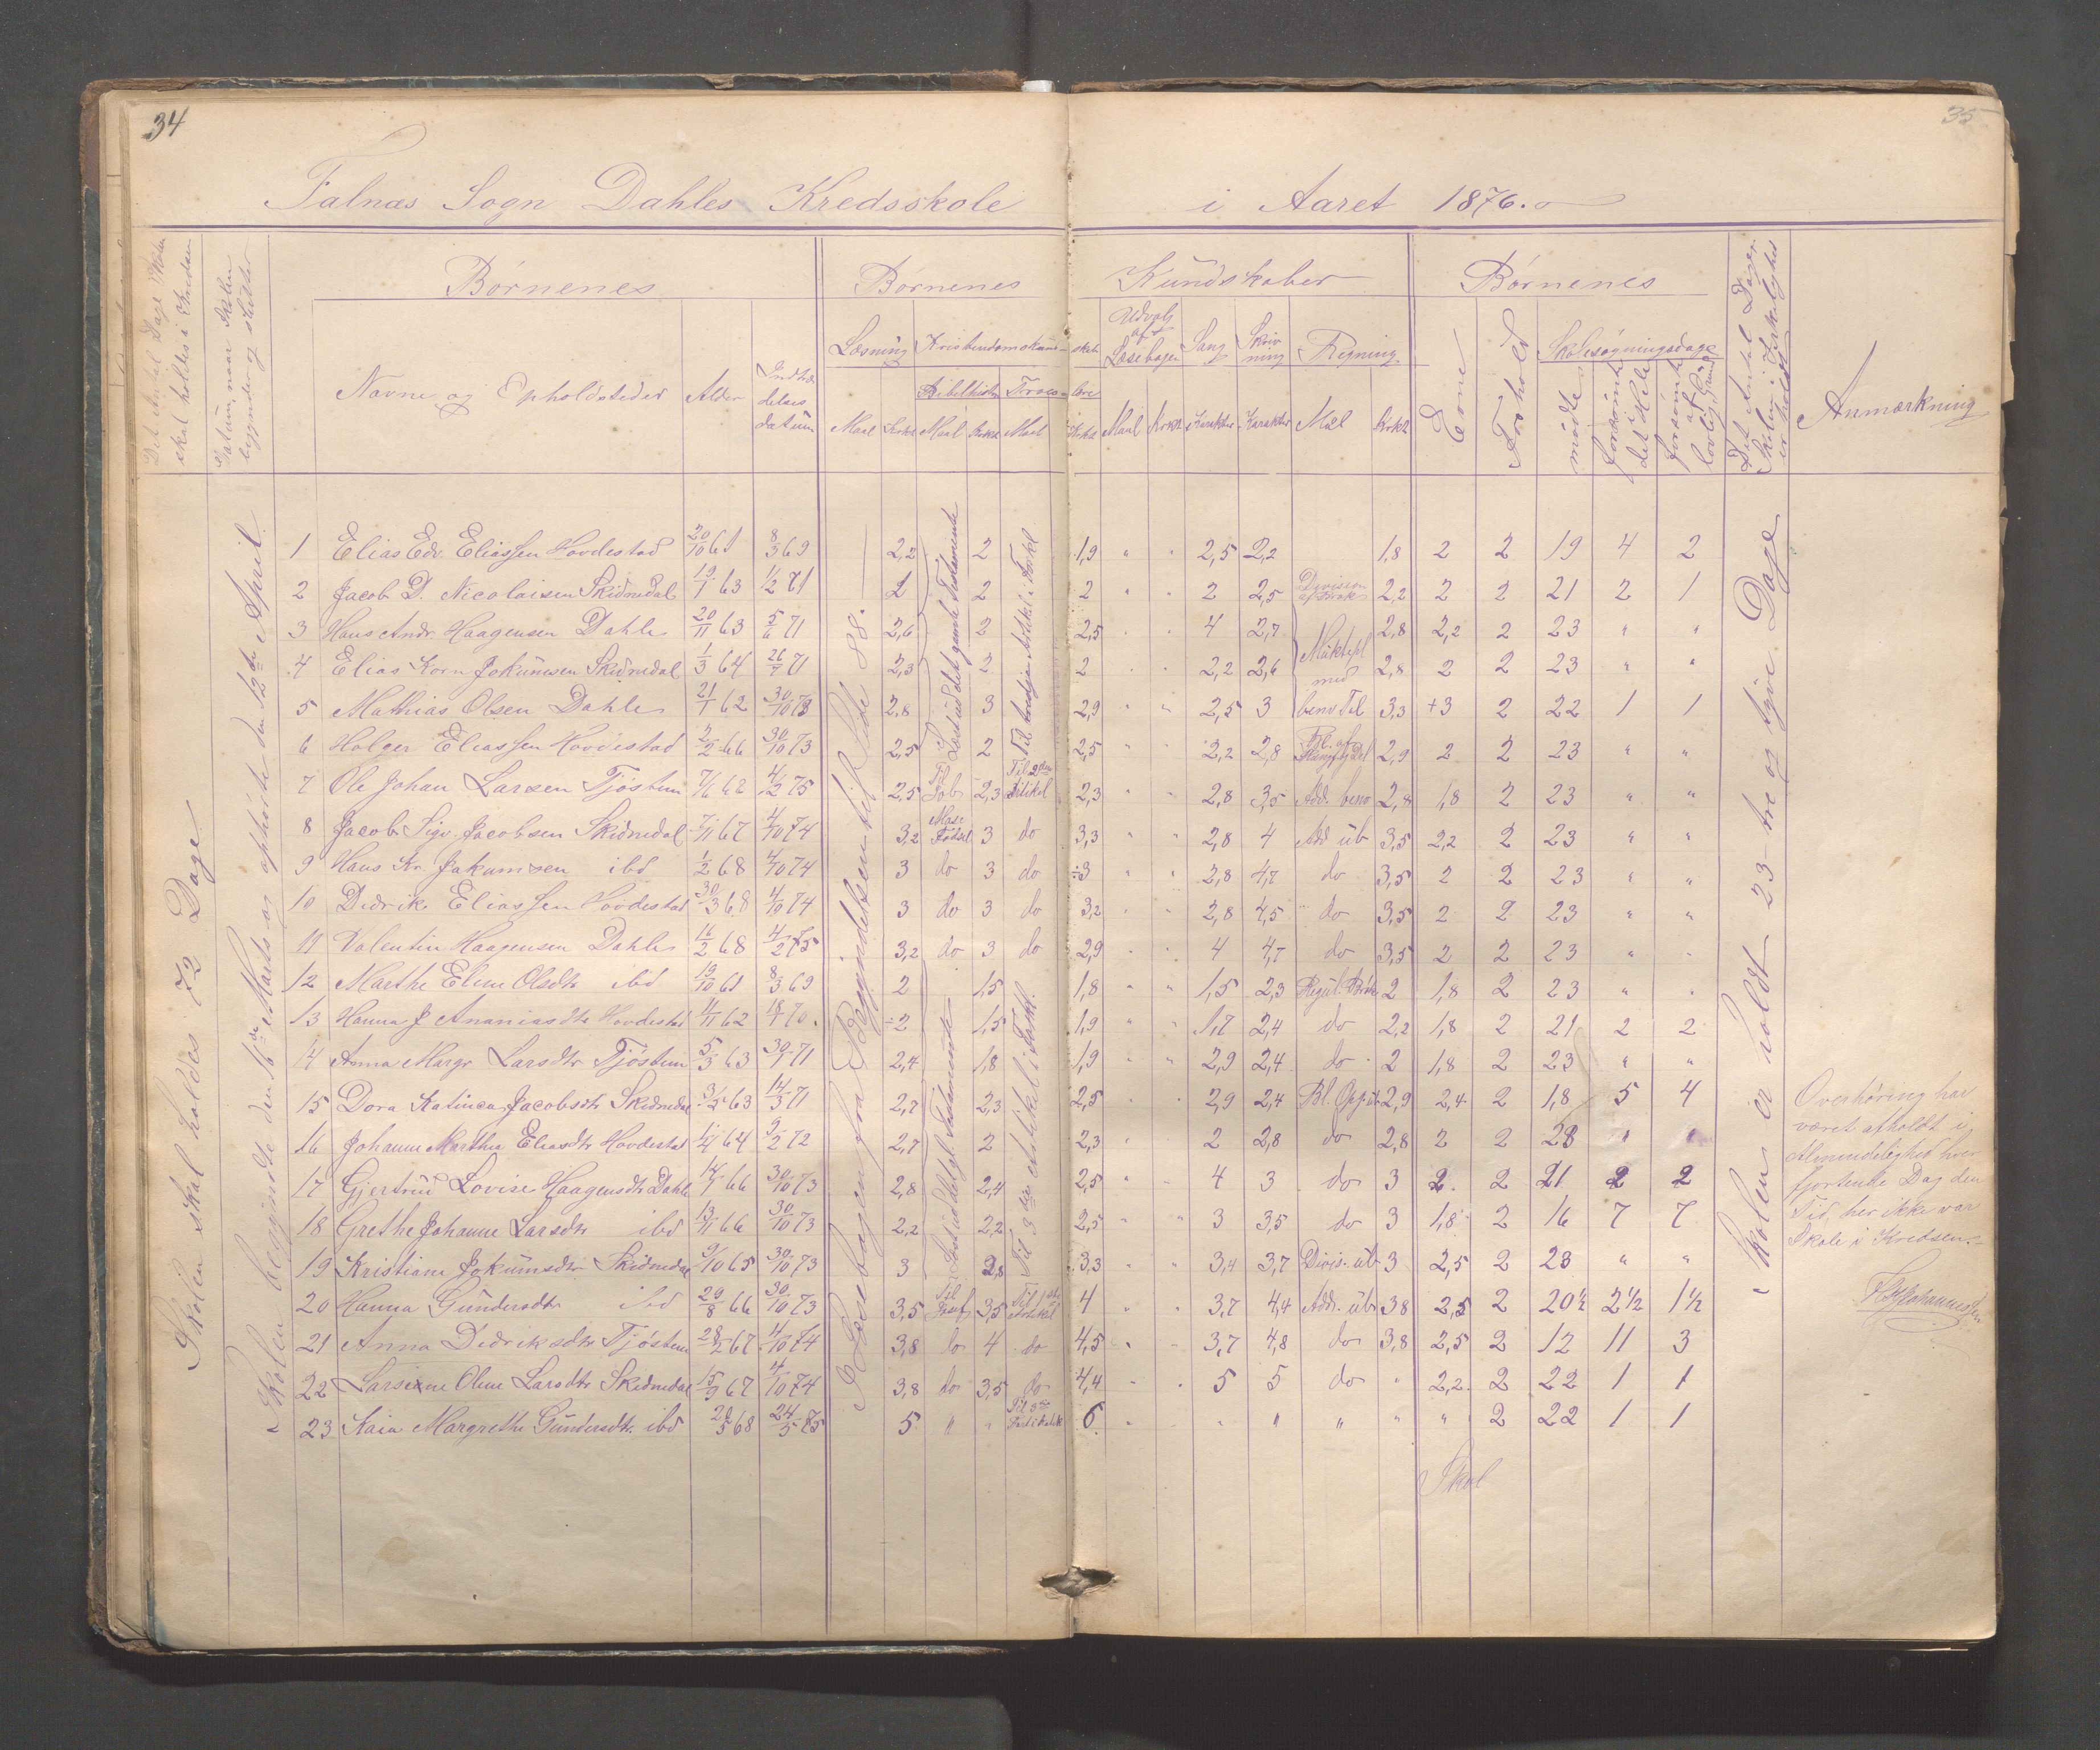 34
35
Falnæs Sogn Dahles Kredsskole i Aaret 1876.
Det Antal Dage Skolen skal holdes i Kredsen
Datum, naar Skolen begynder og slutter
Børnenes
Børnenes Kundskaber
Børnenes
Navne og Opholdsteder
Alder
Indtrædelses datum
Læsning
Kristendomskundskab
Udvalg af Læsebogen
Sang
Skrivning
Regning
Bibelhist.
Troeslære
Maal
Krkt
Maal
Krkt
Maal
Krkt
Maal
Krkt
Karakter
Karakter
Maal
Krkt
Evne
Forhold
Skolesøgningsdage
mødte
forsømte i det Hele
forsømte af lovlig Grund
Det Antal Dage Skolen i Virkeligheden er holdt
Anmærkning
Skolen skal holdes 72 Dage
Skolen begyndte den 16de Marts og ophørte den 12te April.
I Læsebogen fra Begyndelsen til Side 88.
Læst ud det gamle Testamente
Til tredje Artikel i Forkl
Læst ud det gl. Testamente
Til 3die Artikel i Forkl.
Skolen er holdt 23 tre og tyve Dage
1 Elias Edv. Eliassen Hovdestad 20/10 61 8/3 69 2,2 2 1,9 " " 2,5 2,2 1,8 2 2 19 4 2
2 Jacob D. Nicolaisen Skidnedal 19/1 63 1/2 71 2 2 2 " " 2 2,5 Division af Brøk 2,2 2 2 21 2 1
3 Hans Andr. Haagensen Dahle 20/11 63 5/6 71 2,6 2 2,5 " " 4 2,7 2,8 2,2 2 23 " "
4 Elias Korn. Jokumsen Skidnedal 1/3 64 26/7 71 2,3 2 2 " 2,2 2,6 Multipl med 2,8 2 2 23 " "
5 Mathias Olsen Dahle 21/1 62 30/10 73 2,8 3 2,9 " " 2,5 3 benv Til 3,3 +3 2 22 1 1
6 Holger Eliassen Hovdestad 2/2 66 30/10 73 2,5 2 2,5 " " 2,2 2,8 2,9 2 2 23 " "
7 Ole Johan Larsen Tjøstem 7/6 62 4/2 75 2,5 Til Job 2,3 Til 2den Artikel 2,3 " " 2,8 3,5 Add. benv 2,8 1,8 2 23 " "
8 Jacob Sigv. Jacobsen Skidnedal 7/11 67 4/10 74 3,2 Mose Fødsel 3 do 3,3 " " 2,8 4 Add ub 3,5 2,2 2 23 " "
9 Hans Kr. Jakumsen ibd 1/2 68 4/10 74 3 do 3 do ÷3 " " 2,8 4,7 do 3,5 2 2 23 " "
10 Didrik Eliassen Hovdestad 30/3 68 4/10 74 3 do 3 do 3,2 " " 2,8 4,5 do 3,5 2 2 23 " "
11 Valentin Haagensen Dahle 11/2 68 4/2 75 3,2 do 3 do 2,9 " " 4 4,7 do 3,5 2 2 23 " "
12 Marthe Elene Olsdtr ibd 19/10 61 8/3 69 2 1,5 1,8 " " 1,5 2,3 Regul. Brøk 2 1,8 2 23 " "
13 Hanna J Ananiasdtr Hovdestad 4/11 62 18/1 70. ÷2 1,5 1,9 " " 1,7 2,4 do 2,2 1,8 2 21 2 2
14 Anna Margr Larsdtr Tjøstem 5/3 63 30/1 71 2,4 1,8 1,9 " " 2,9 2,4 do 2 1,8 2 23 " "
15 Dora Katinca Jacobsdtr Skidnedal 3/5 63 14/3 71 2,7 2,3 2,5 " " 2,9 2,4 2,9 2,4 2 1,8 5 4
16 Johanne Marthea Eliasdtr Hovdestad 1/4 64 9/2 72 2,7 2 2,3 " 2 2,8 do 2,8 2 2 28 " "
17 Gjertrud Lovise Haagensdtr Dahle 14/1 66 30/10 73 2,8 2,4 2,5 " " 4 3 do 3 2 2 21 2 2
18 Grethe Johanne Larsdtr ibd 13/11 66 30/10 73 2,2 2,2 2,5 " " 3 3,5 do 3 1,8 2 16 7 7
19 Kristiane Jokumsdtr Skidnedal 9/10 65 30/10 73 3 2,8 3,3 " " 3,4 3,7 Divis. ub 3 2,5 2 23 " "
20 Hanna Gundersdtr ibd 29/8 66 30/10 73 3,5 3,5 Til 1ste Artikel 4 " " 3,7 4,4 Add. ub 3,8 2,5 2 20½ 2½ 1½
21 Anna Didriksdtr Tjøstem 28/2 67 4/10 74 3,8 do 4 do 4,5 " " 3,7 4,8 do 3,8 2,5 2 12 11 3
22 Larsine Oline Larsdtr Skidnedal 15/9 67 4/10 74 3,8 do 3,5 do 4,4 " " 5 5 do " 2,2 2 22 1 1
23 Kaia Margrethe Gundersdtr. ibd 20/5 68 24/5 75 5 " " 6 " " " " " " " 2 22 1 1
Skol
Overhøring har
været afholdt i
Almindelighed hver
fjortende Dag den
Tid, her ikke var
Skole i Kredsen.